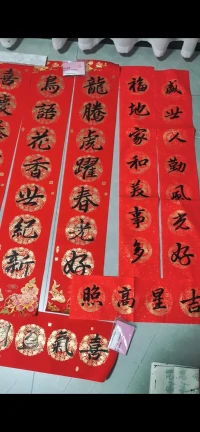 盛世人勤風光好
福地家和事多
龍騰虎躍春光好
鳥語花香世紀新
喜慶
吉星高照
喜氣